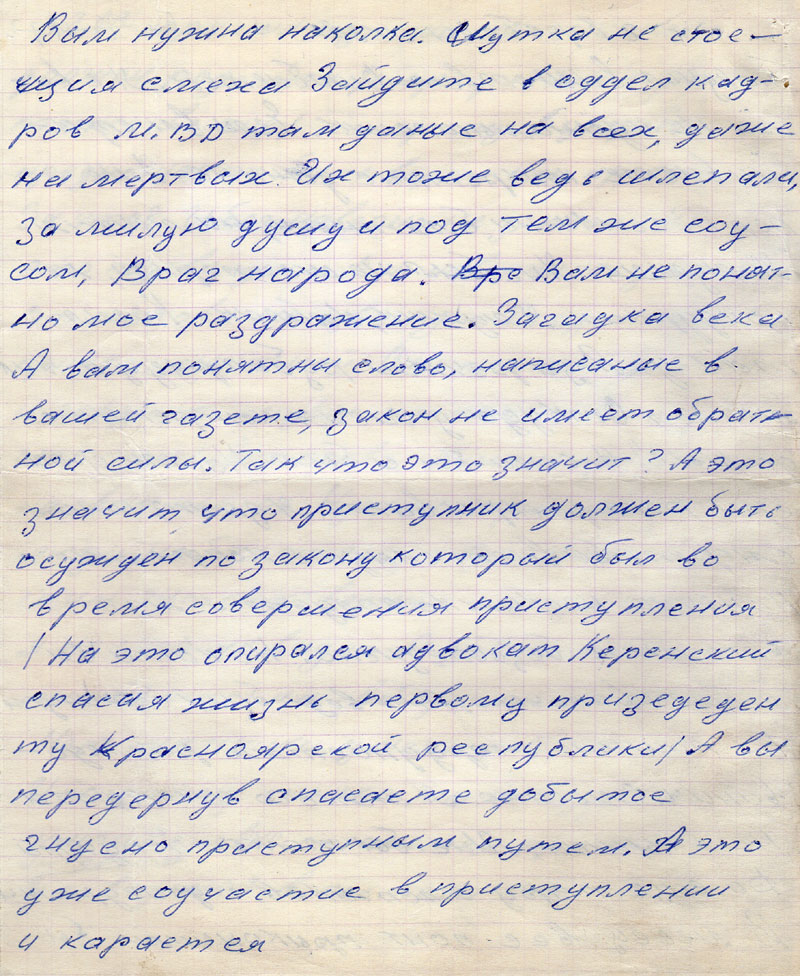 Вам нужна наколка. Шутка не стое-
щия смеха Зайдите в оддел кад-
ров М.ВД там даные на всех, даже
на мертвых. Их тоже ведь шлепали,
за милую душу и под тем же соу-
сом, Враг народа. Вам не понят-
но мое раздражение. Загадка века
А вам понятны слова, написаные в
вашей газете, закон не имеет обрат-
ной силы. Так что это значит? А это
значит что приступник должен быть
осужден по закону который был во
время совершения приступления
/На это опирался адвокат Керенский
спасая жизнь первому призедеден
ту Красноярской республики/ А вы
передернув спасаете добытое
гнусно приступным путем. А это
уже соучастие в приступлении
и карается